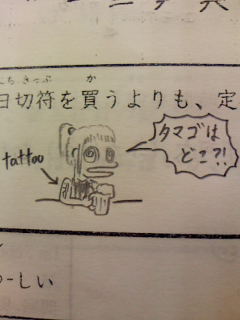 きっぷ か
日切符を買うよりも、定
tattoo
タマゴは
どこ?!
しい